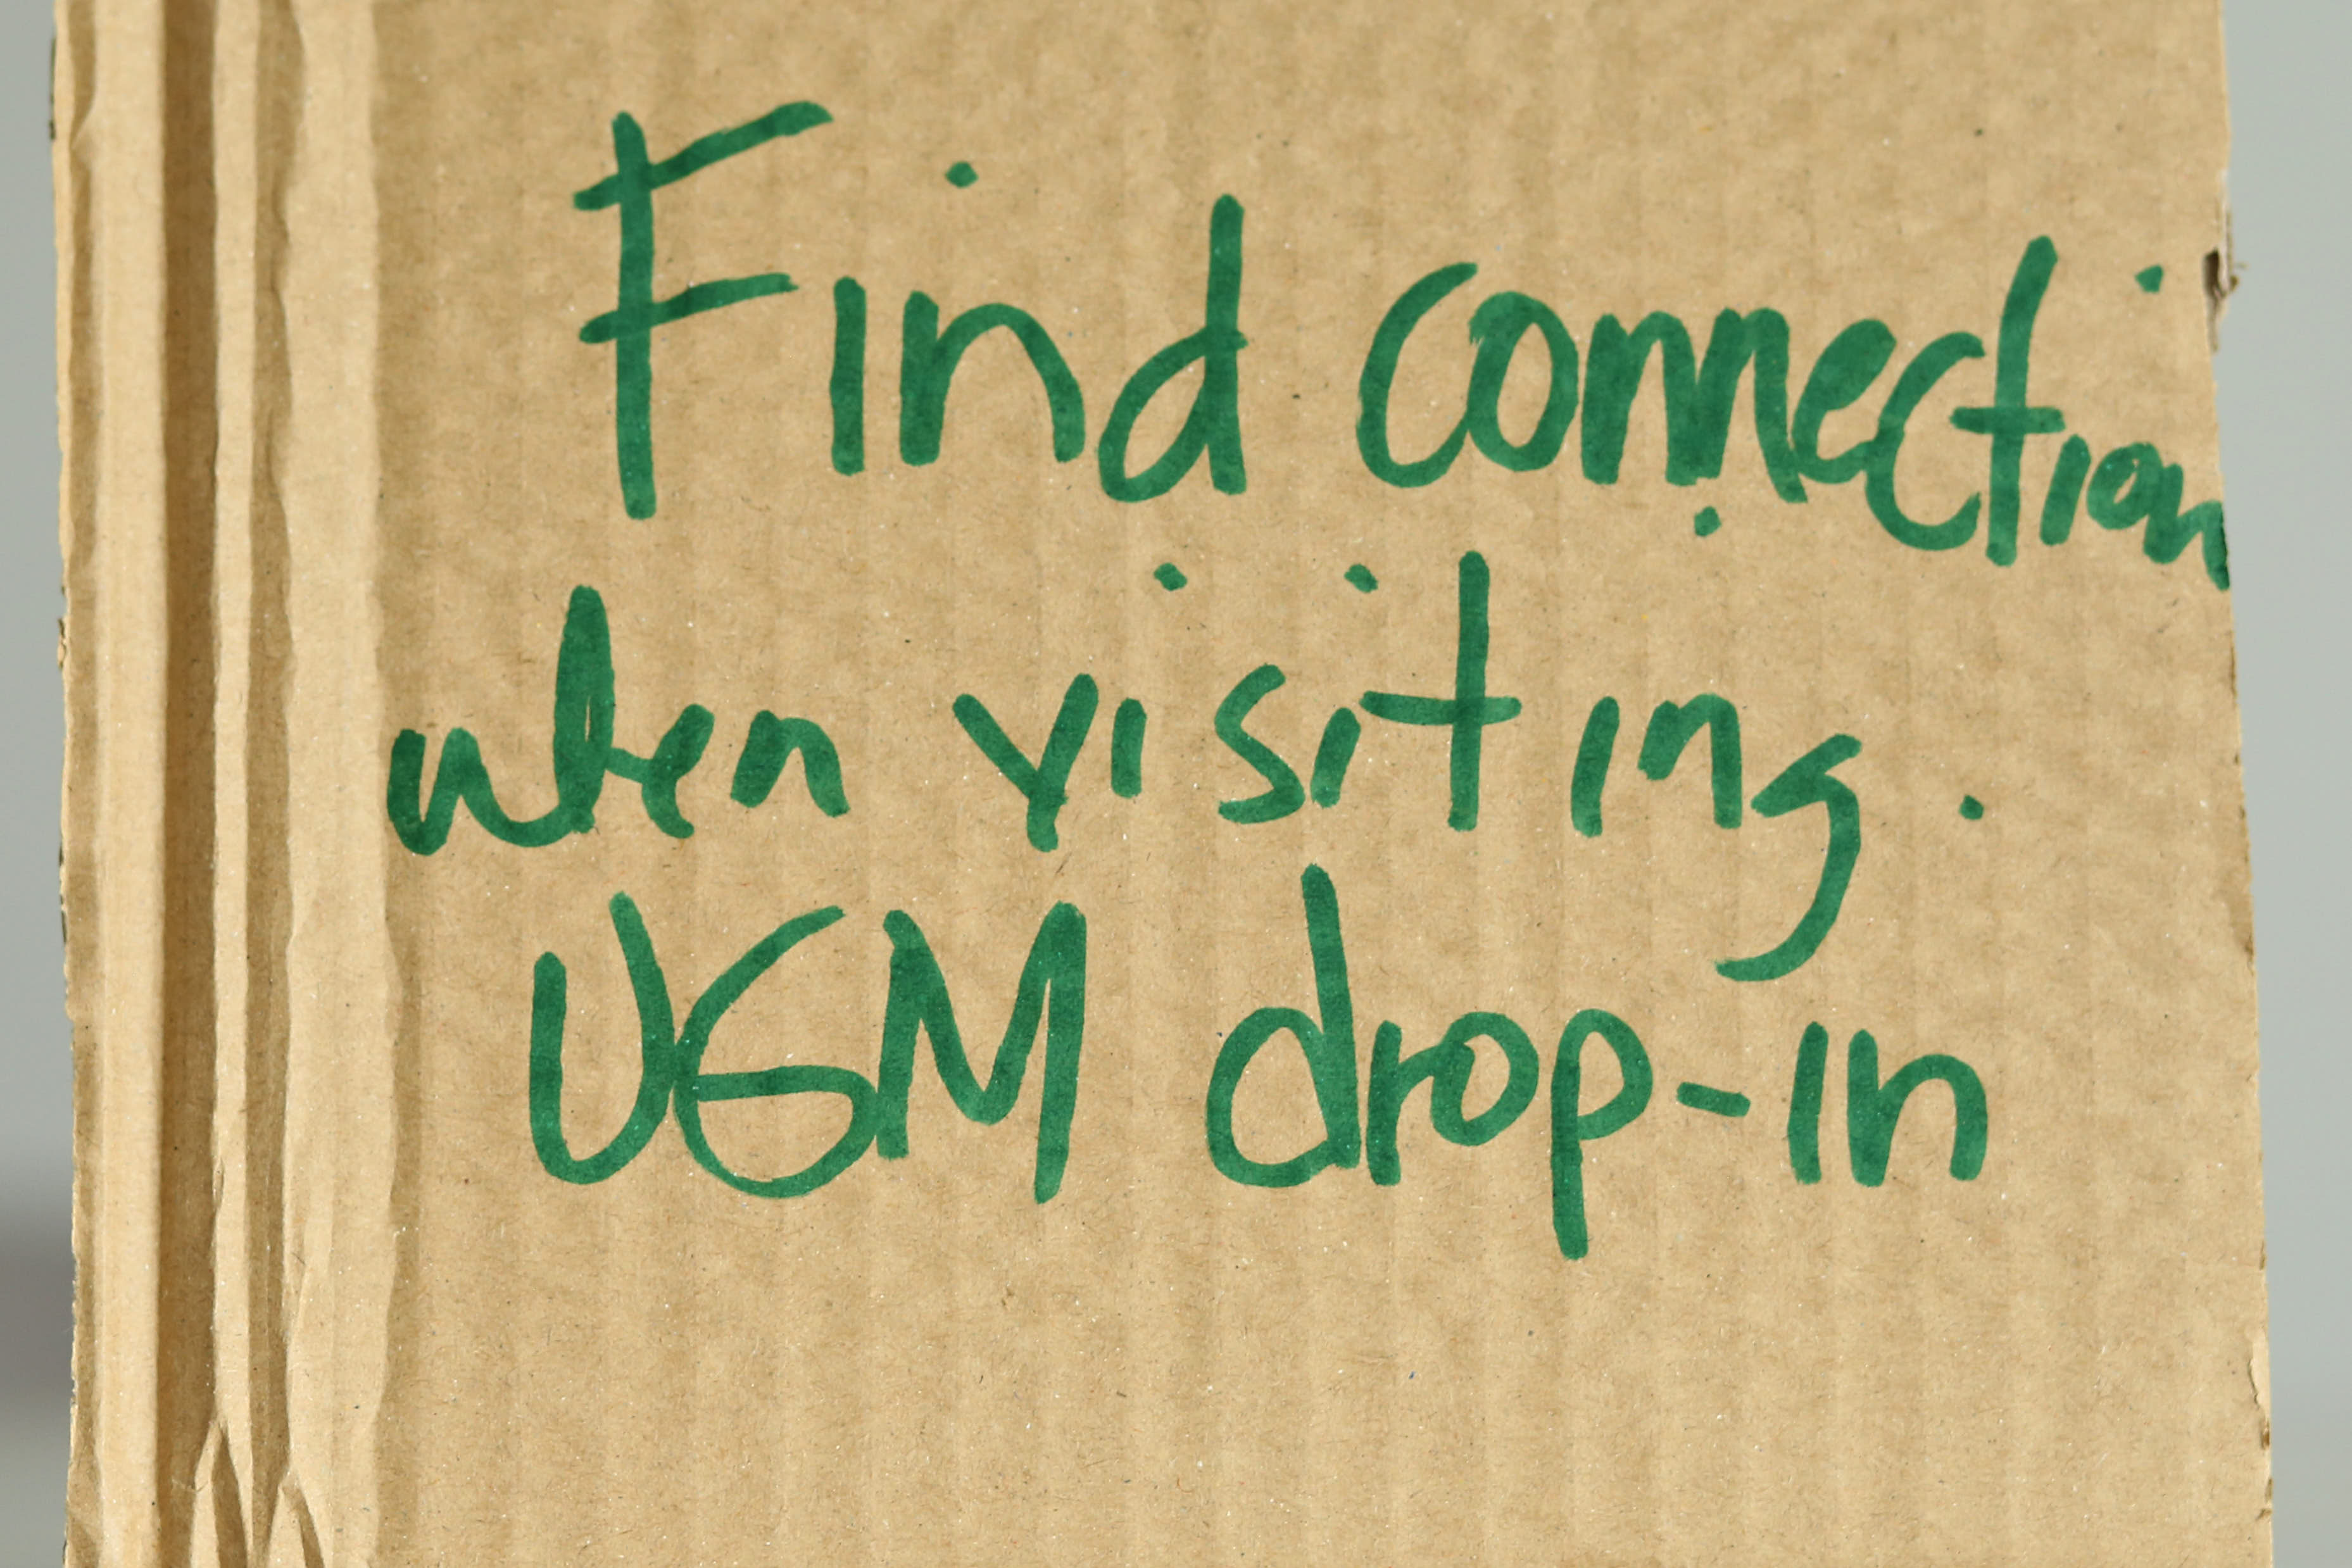 Find connection
when visiting.
UGM drop-in